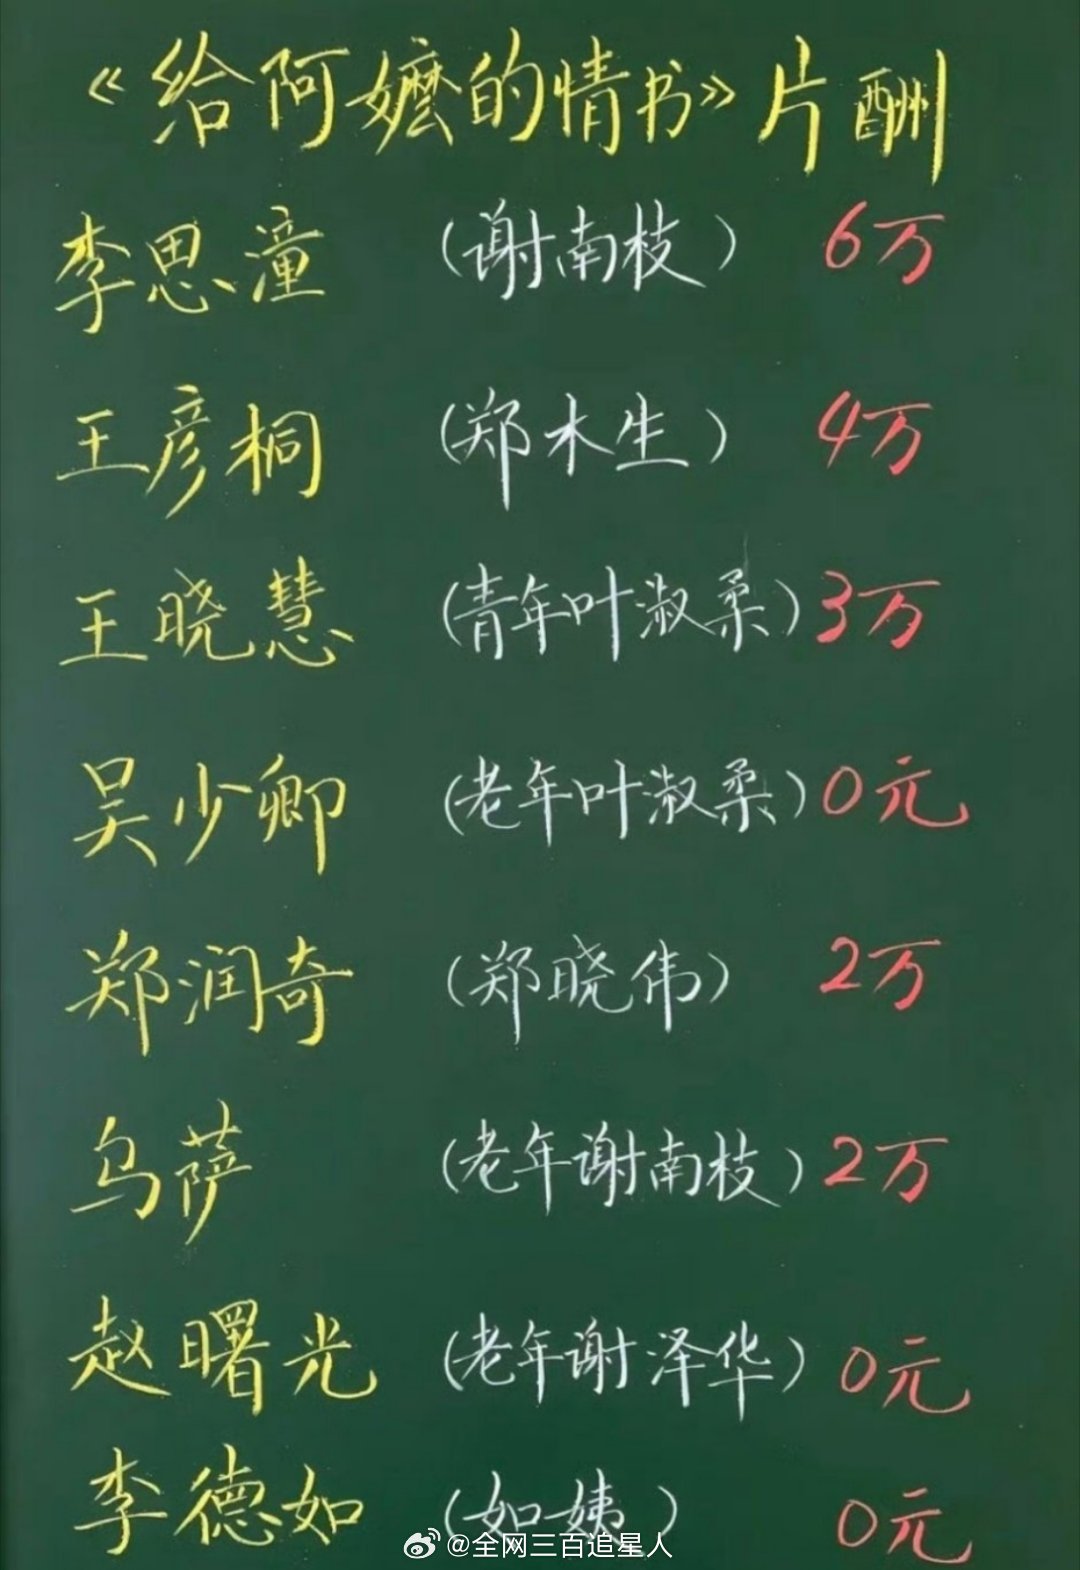 《给阿嬷的情书》片酬
李思潼 (谢南枝) 6万
王彦桐 (郑木生) 4万
王晓慧 (青年叶淑柔) 3万
吴少卿 (老年叶淑柔) 0元
郑润奇 (郑晓伟) 2万
乌萨 (老年谢南枝) 2万
赵曙光 (老年谢泽华) 0元
李德如 (如姨) 0元
@全网三百追星人